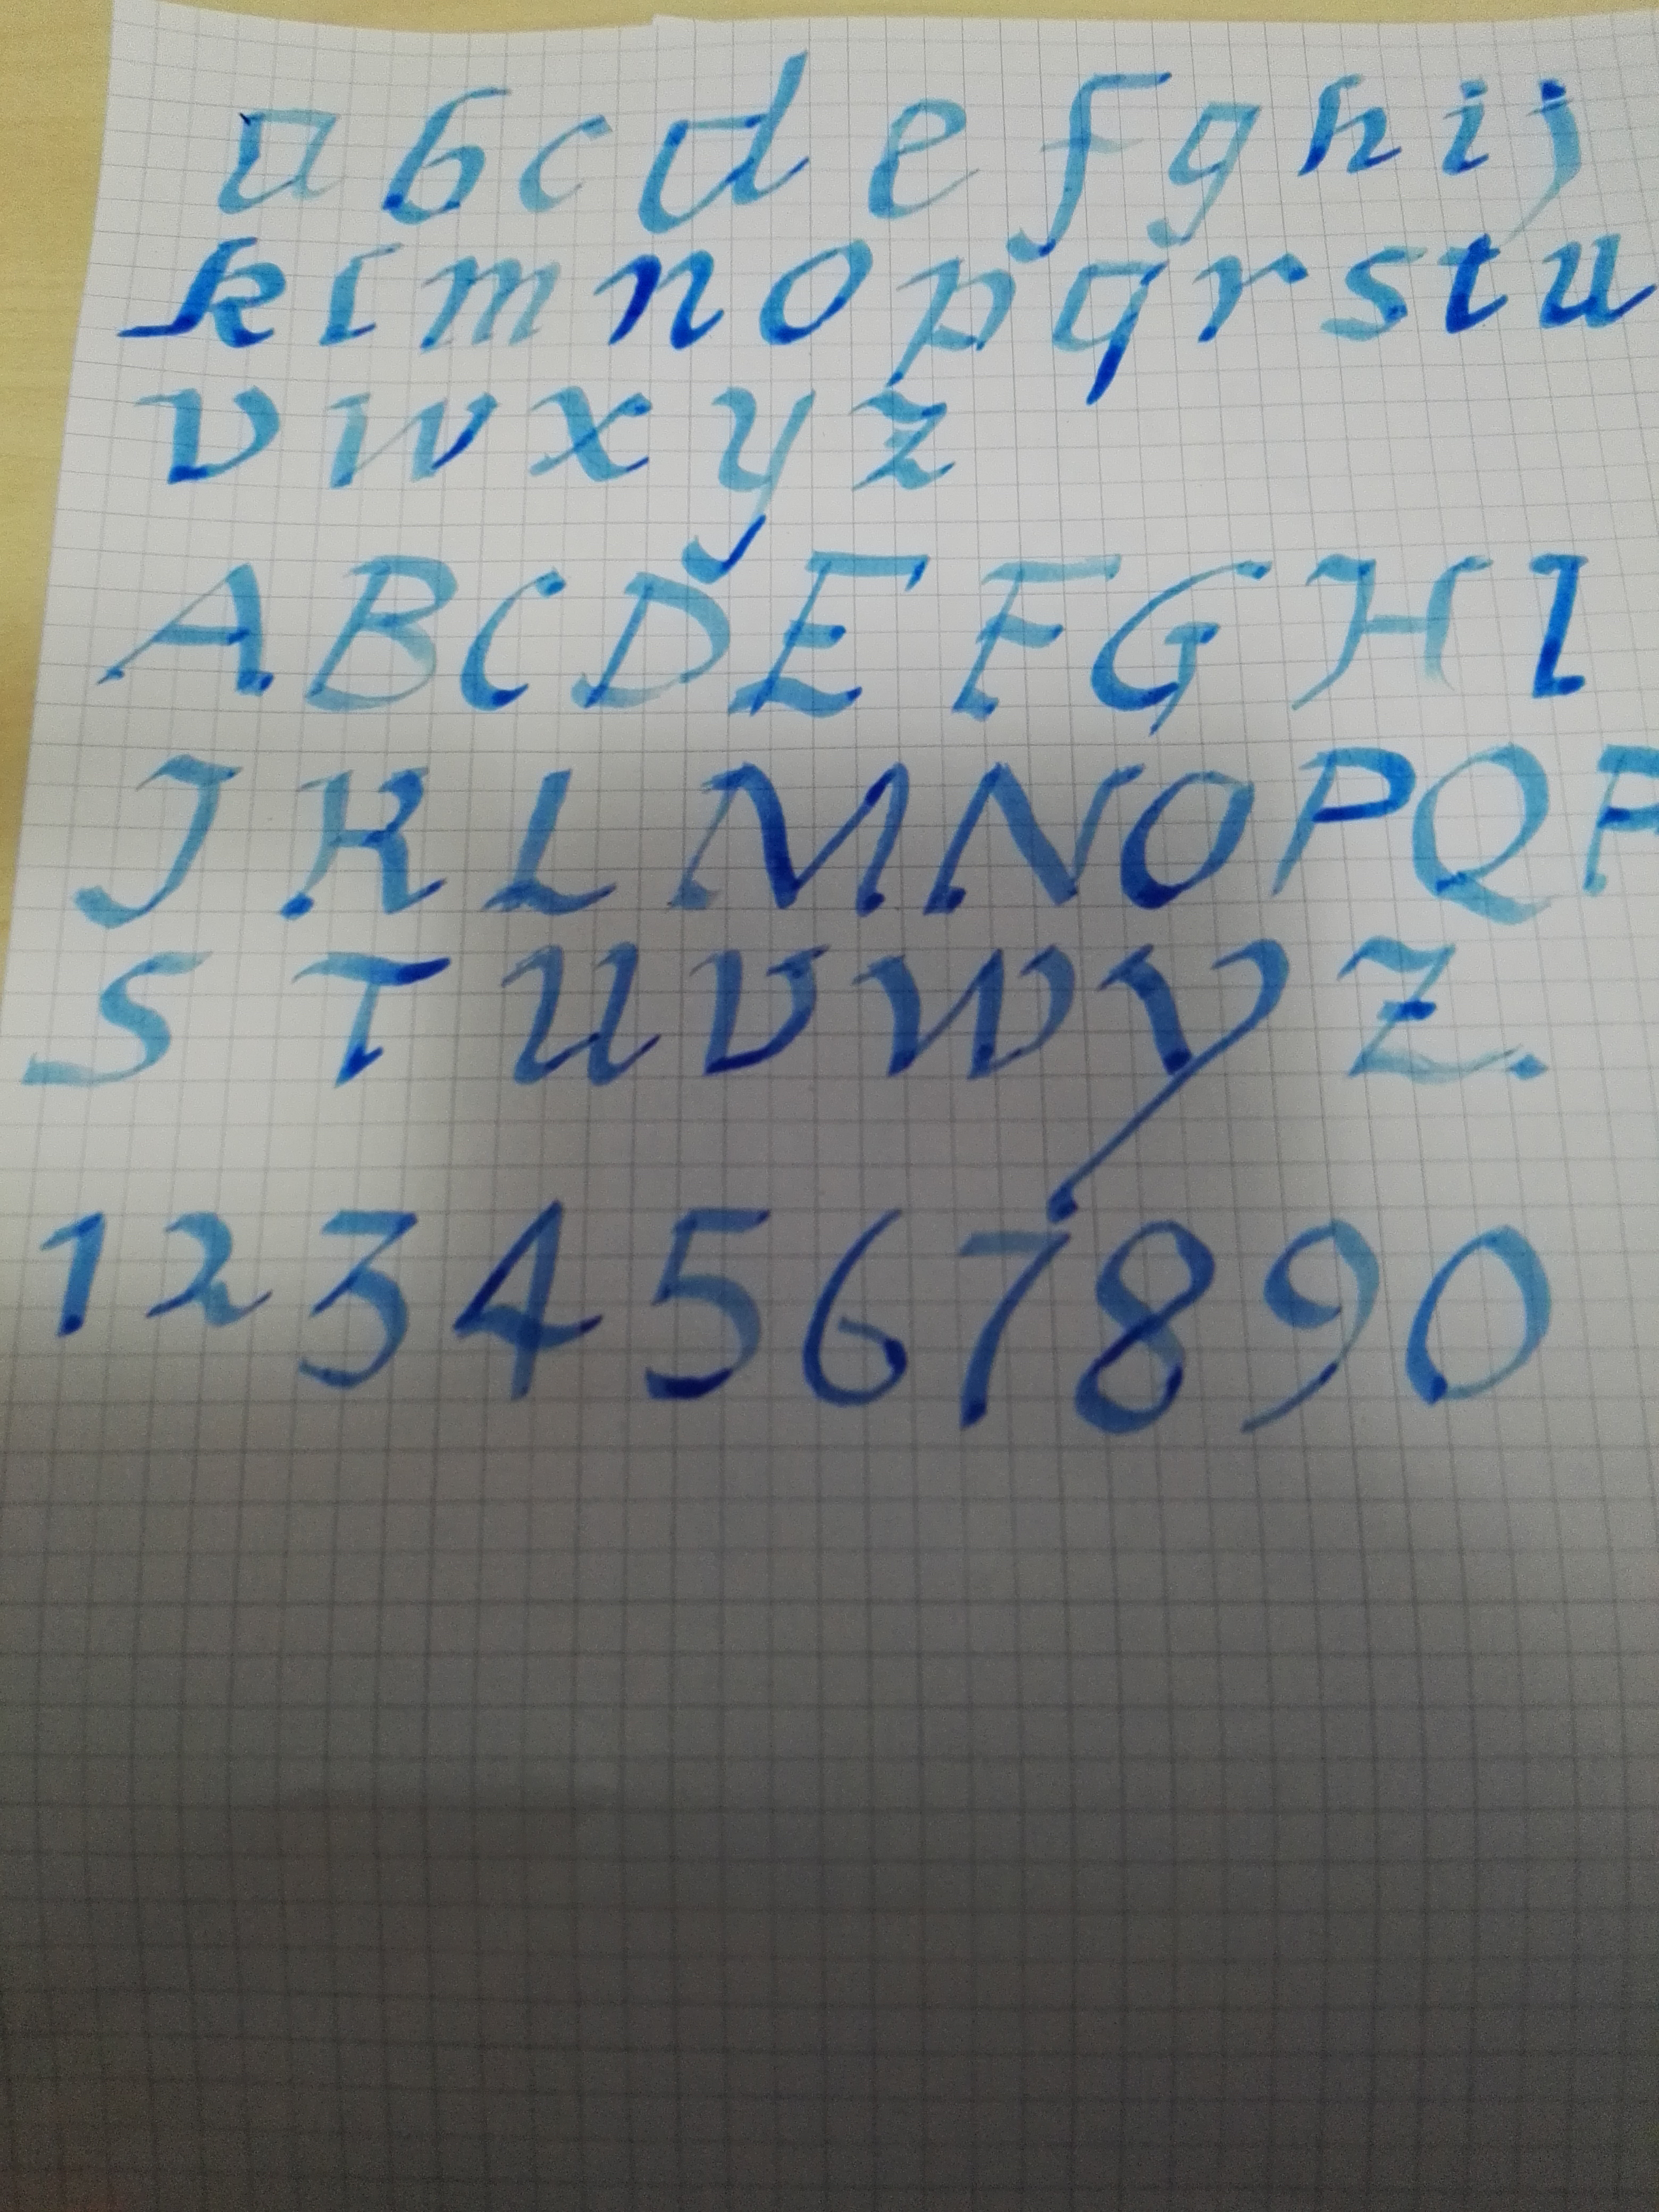 a b c d e f g h i j
k l m n o p q r s t u
v w x y z
A B C D E F G H I
J K L M N O P Q R
S T U V W Y Z.
1 2 3 4 5 6 7 8 9 0